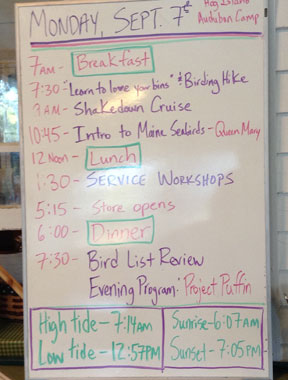 MONDAY, SEPT. 7th
Hog Island
Audubon Camp
7AM- Breakfast
7:30-"Learn to love your bins" & Birding Hike
9AM- Shakedown Cruise
10:45- Intro to Maine Seabirds-Queen Mary
12 Noon- Lunch
1:30- SERVICE WORKSHOPS
5:15- Store opens
6:00- Dinner
7:30- Bird List Review
Evening Program: Project Puffin
High tide-7:14AM
Low tide-12:57PM
Sunrise-6:07AM
Sunset-7:05PM